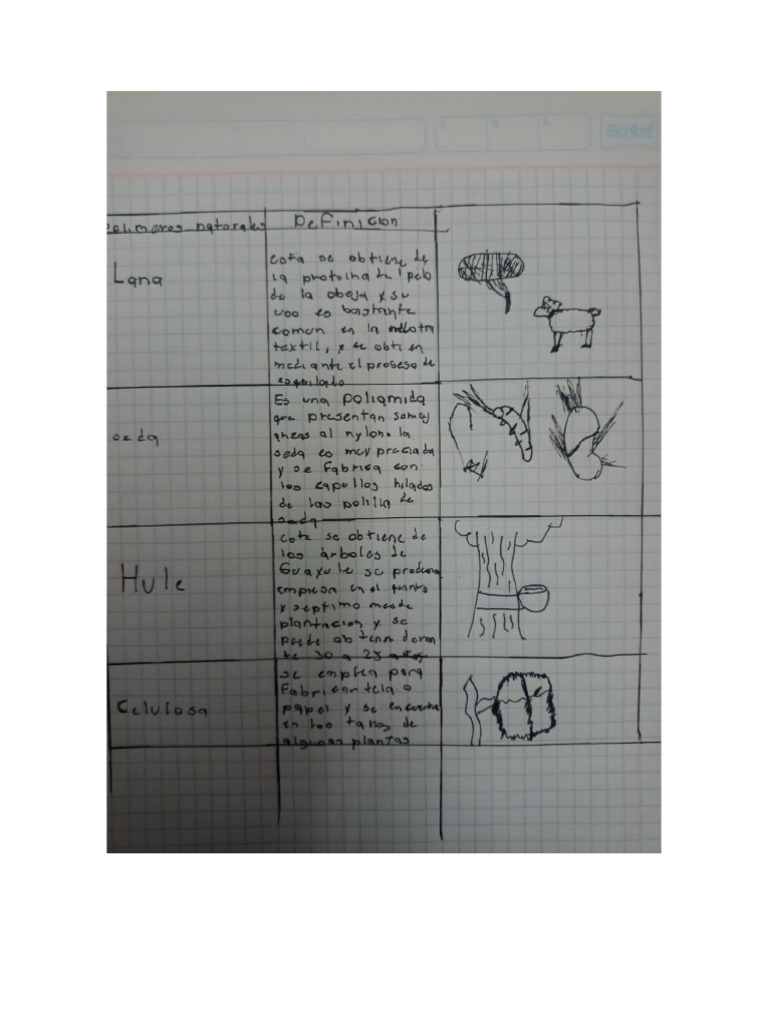 Scribe
Polimeros naturales
Definicion
Lana
esta se obtiene de
la proteina del pelo
de la obeja y su
uso es bastante
comun en la
textil, y se obtien
mediante el proseso de
esquilado
seda
Es una poliamida
que presentan semej
anzas al nylon. la
seda es muy preciada
y se fabrica con
los capullos hilados
de las polilla de
seda
Hule
esta se obtiene de
los árboles de
Guayule su produc
empieza en el quinto
y septimo mes de
plantacion y se
puede obtener duran
te 30 a 25
Celulosa
se emplea para
fabricar tela o
papel y se encuentra
en los tallos de
algunas plantas